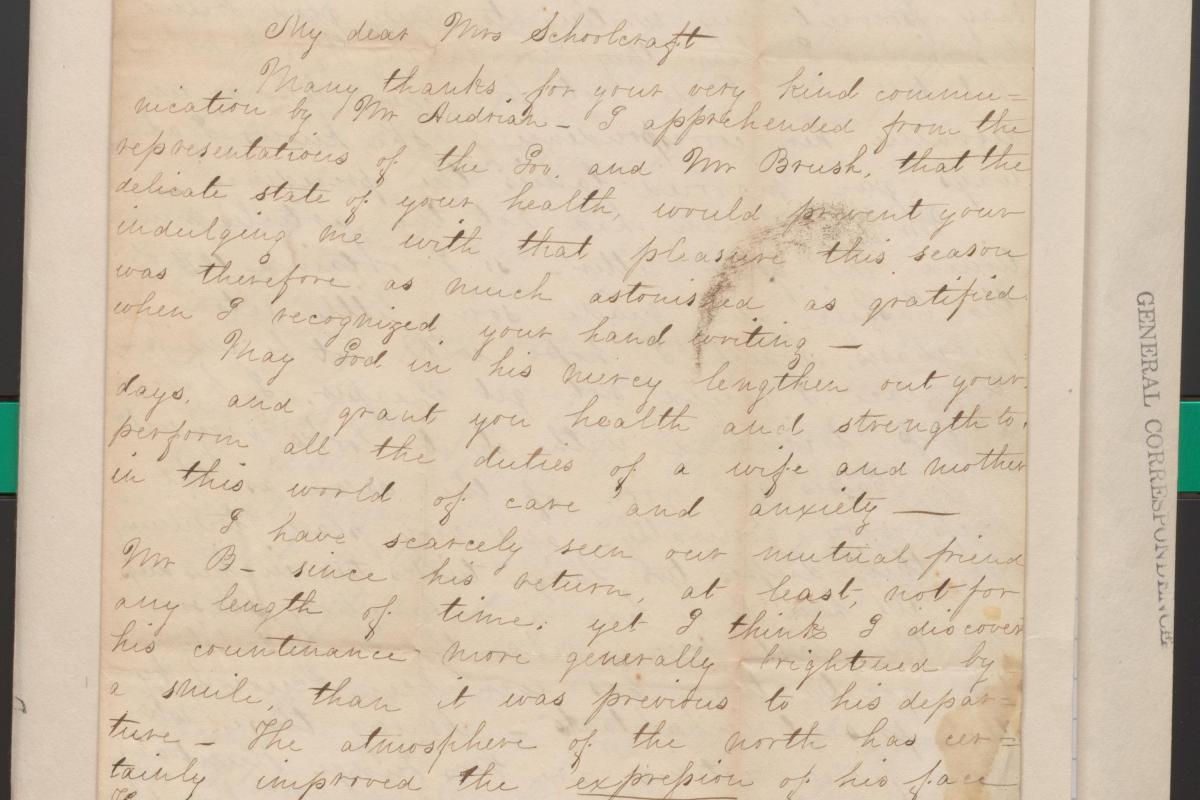 My dear Mrs Schoolcraft
Many thanks for your very kind commu=
nication by Mr Audrian – I apprehended from the
representations of the Gov. and Mr Brush, that the
delicate state of your health, would prevent your
indulging me with that pleasure this season
was therefore as much astonished as gratified
when I recognized your hand writing —
May God in his mercy lengthen out your
days, and grant you health and strength to
perform all the duties of a wife and mother
in this world of care and anxiety —
I have scarcely seen our mutual friend
Mr B– since his return, at least, not for
any length of time; yet I think I discover
his countenance more generally brightened by
a smile, than it was previous to his depar=
ture – The atmosphere of the north has cer=
tainly improved the expression of his face
GENERAL CORRESPONDENCE